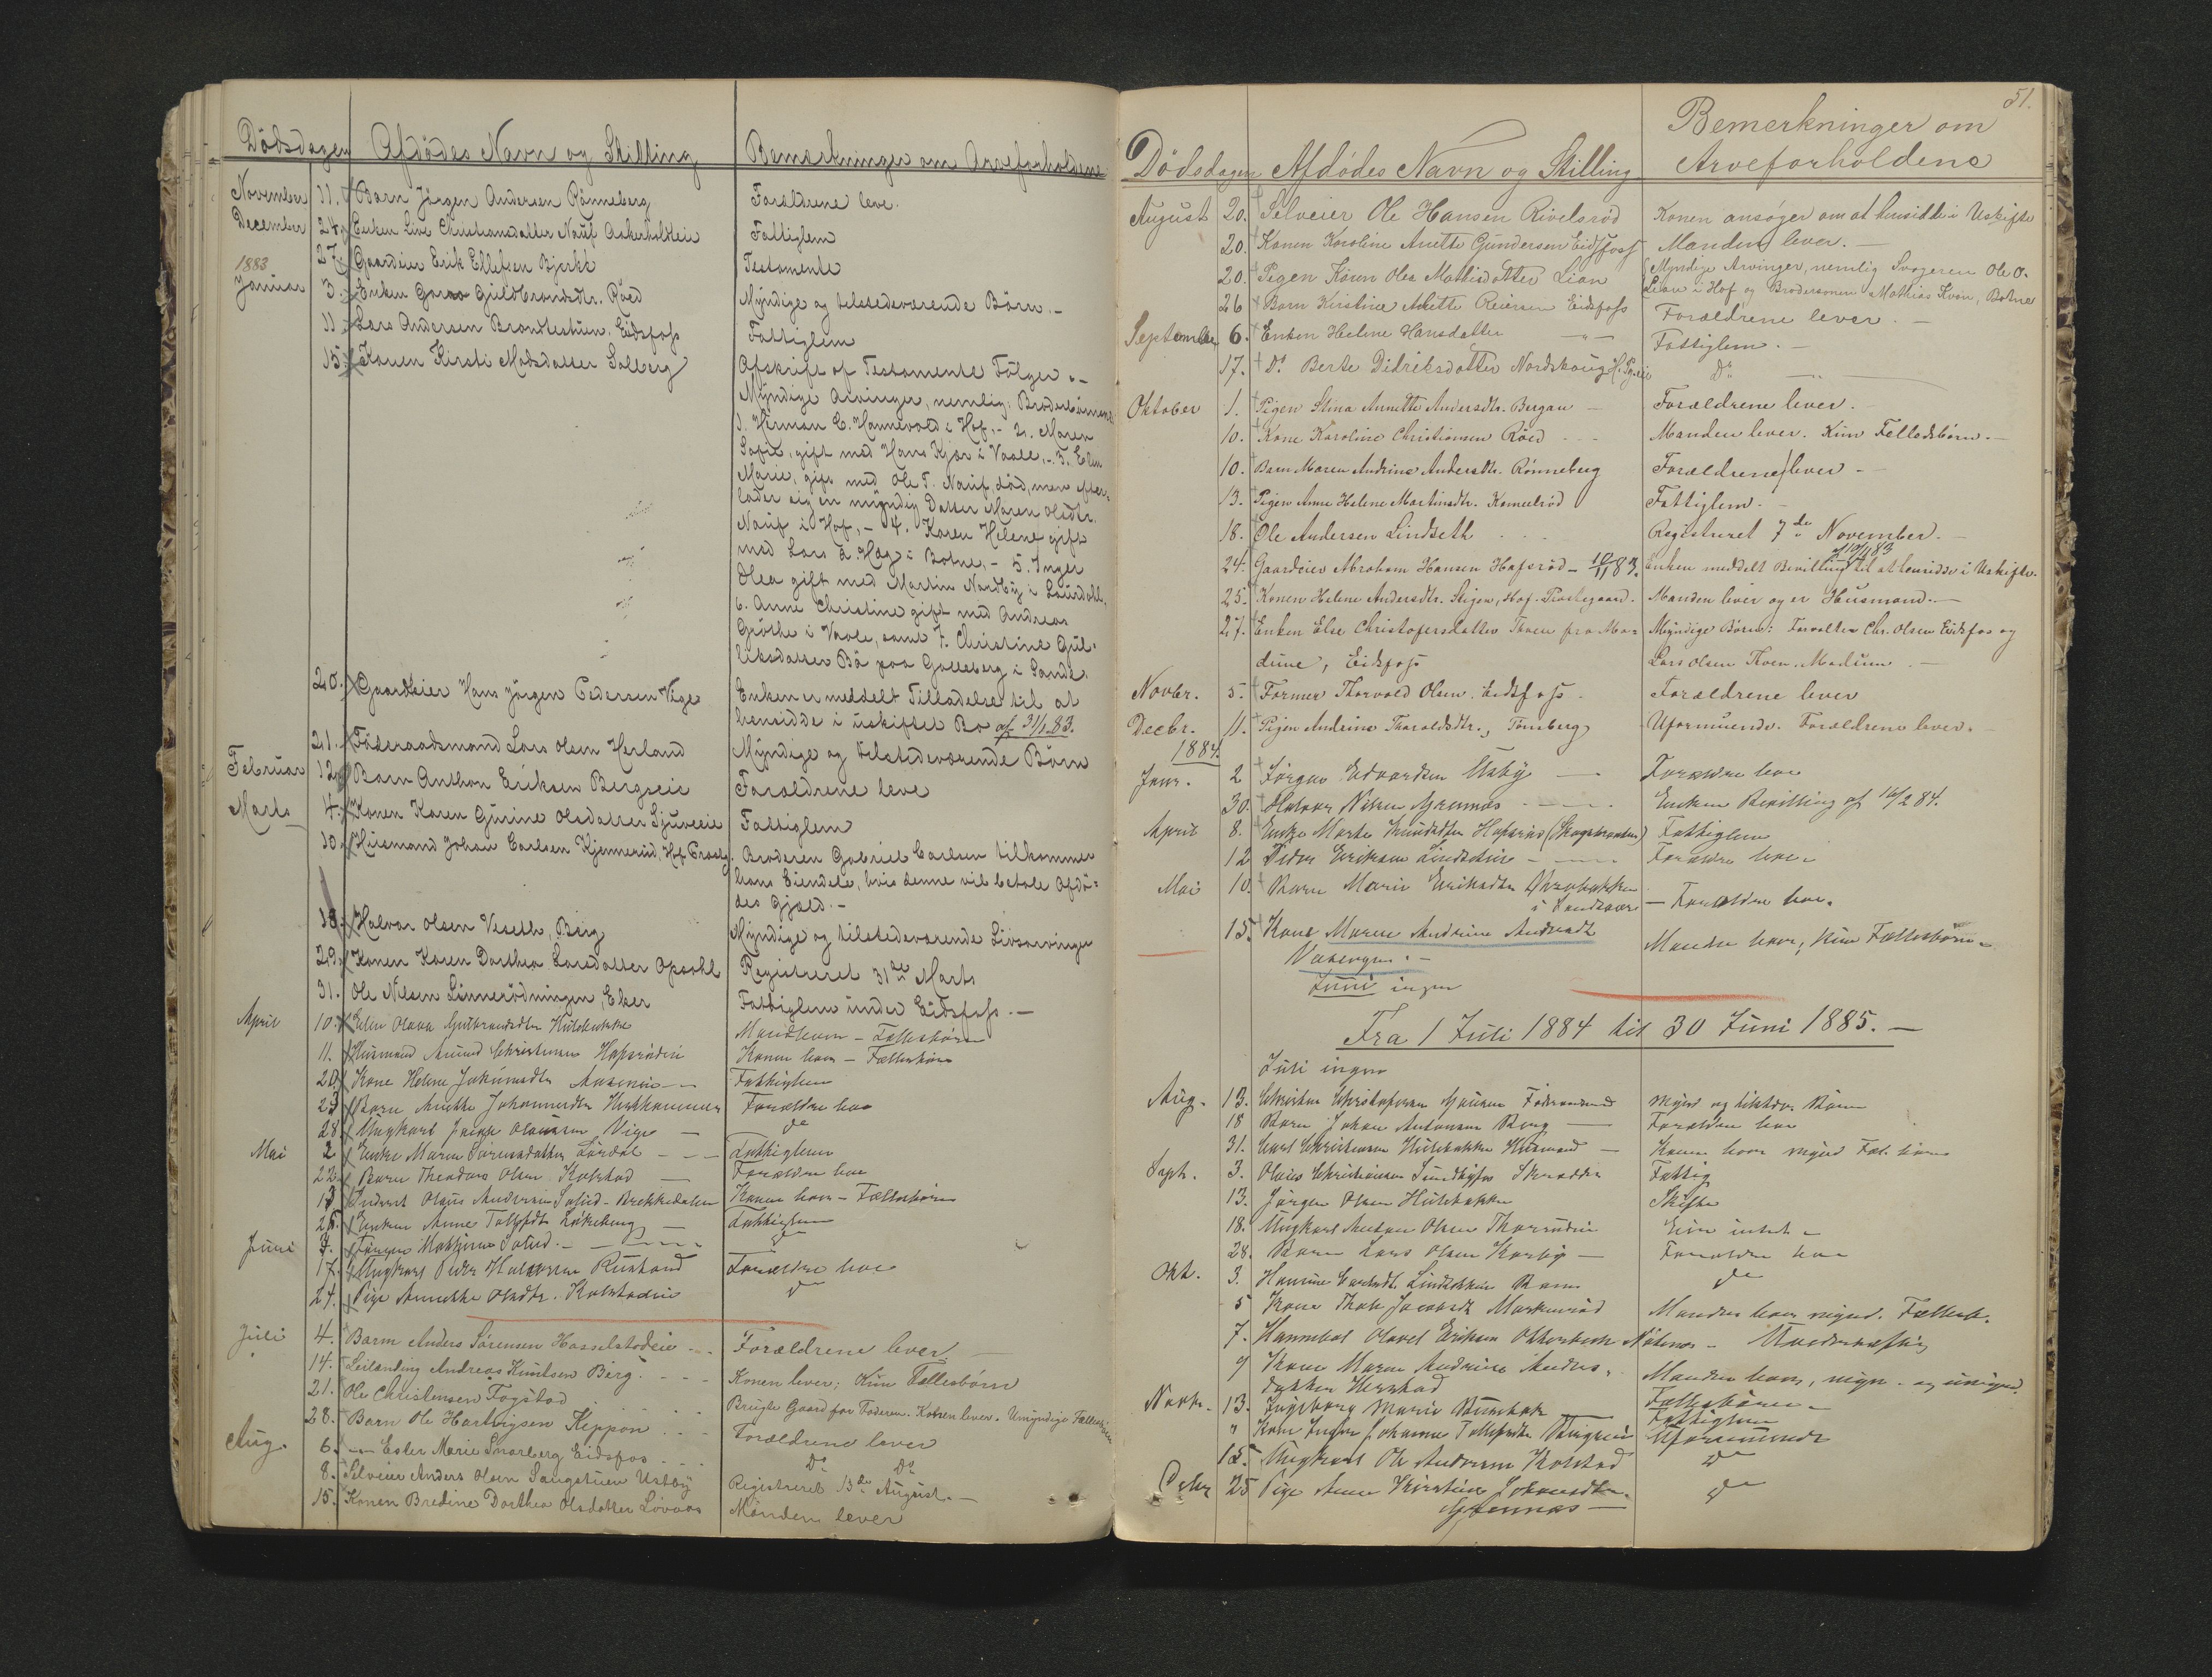 Dødsdagen Afdødes Navn og Stilling Bemærkninger om Arveforholdene
November 11. Barn Jørgen Andersen Rønneberg Forældrene leve.
December 24. Enken Live Christiansdatter Nauf Fattiglem
27. Gaardeier Erik Ellefsen Bjerke Testamente
1883
Januar 3. Enken Guldbrandsdtr. Røed Myndige og tilstedeværende Børn.-
11. Lars Andersen Brandlestuen, Eidsfoss Fattiglem
15. Konen Kirsti Madsdatter Solberg Afskrift af Testamente Følger.-
Myndige Arvinger, nemlig: Broderbørnene
1. Herman C. Hannevold i Hof,- 2. Maren
Sofie, gift med Hans Kjær i Vaale,- 3. Elen
Marie, gift med Ole T. Nauf, død, men efter-
lader sig en myndig Datter Maren Olsdtr.
Nauf i Hof,- 4. Karen Helene gift
med Lars a Hag i Botne,- 5. Inger
Olea gift med Martin Nordby i Laurdahl,
6. Anne Christine gift med Andreas
Grøthe i Vaale, samt 7. Christine Gul-
liksdatter Bø paa Galleberg i Sande.
20. Gaardeier Hans Jørgen Pedersen Vige Enken er meddelt Tilladelse til at
hensidde i uskiftet Bo af 31/1.83.
21. Føderaadsmand Lars Olsen Herland Myndige og tilstedeværende Børn
Februar 12. Barn Anthon Eriksen Bergseie Forældrene leve
Marts 4. Konen Karen Gurine Olsdatter Fattiglem
10. Husmand Johan Carlsen Kjennerud, Hof Præstg. Broderen Gabriel Carlsen tilkommer
hans Eiendele, hvis denne vil betale Afdø-
des Gjæld.-
18. Halvor Olsen Veseth, Berg Myndige og tilstedeværende Livsarvinger
29. Konen Karen Dorthea Larsdatter Opsahl Registreret 31te Marts
31. Ole Nilsen Linnerødningen, Eker Fattiglem under Eidsfoss.-
April 10. Elin Olava Gulbrandsdtr Hulebakke Mand lever - Fællesbørn
11. Husmand Amund Christensen Hafsrødeie Konen lever - Fællesbørn
20. Kone Helene Fattiglem
23. Barn Anette Johannesdtr Forældre leve
28. Ungkarl Olaussen Vige do
Mai 2 Enke Maren Lørdal Fattiglem
22. Barn Theodora Olsen Kolstad Forældre leve
13 Olaus Andersen Konen lever - Fællesbørn
25. Enken Anne Løkeberg Fattiglem
Juni 7. do
17. Ungkarl Peder Halvorsen Rustand Forældre leve
24. Pige Annette Olsdtr. Kolstadeie do
Juli 4. Barn Anders Sørensen Hasselstadeie Forældrene lever
14. Leilænding Andreas Knutsen Berg. Konen lever; Kun Fællesbørn
21. Ole Christensen Fogstad Brugte Gaard for Faderen. Konen lever. Umyndige Fællesbørn
28. Barn Ole Hartvigsen Keppon Forældrene lever
Aug. 6. Ester Marie Snarberg Eidsfos Do Do
8. Selveier Anders Olsen Saugstuen Ustby Registreret 13de August.-
15. Konen Bredine Dorthea Olsdatter Løvaas Manden lever
51.
Dødsdagen Afdødes Navn og Stilling Bemerkninger om
Arveforholdene
August 20. Selveier Ole Hansen Rivelsrød Konen ansøger om at hensidde i Uskifte
20. Konen Karoline Anette Gundersen Eidsfoss Manden lever.-
20. Pigen Karen Olea Mathisdatter Lian Myndige Arvinger, nemlig Svogeren Ole O.
Lian i Hof og Brodersønnen Mathias Kvan, Botne
26 Barn Kirstine Anette Reiersen Eidsfoss Forældrene lever.-
September 6. Enken Helene Hansdatter -"- Fattiglem.-
17. Do Berte Didriksdatter Nordskoug Do
Oktober 1. Pigen Stina Annette Andersdtr. Bergan Forældrene lever.
10. Kone Karoline Christiansen Røed Manden lever. Kun Fellesbørn.-
10. Barn Maren Andrine Andersdtr. Rønneberg Forældrene lever -
13. Pigen Anne Helene Martinsdtr. Kameelrød Fattiglem.
18. Ole Andersen Lindseth Registreret 7de November.-
24. Gaardeier Abraham Hansen Hafsrød - 10/11 83. Enken meddelt Bevilling af 10/11 83 til at hensidde i Uskifte.
25. Konen Helene Andersdtr. Stigen, Hof. Præstegaard. Manden lever og er Husmand.-
27. Enken Else Christofersdatter Thven fra Ma- Myndige Børn: Forvalter Chr. Olsen Eidsfos og
dune, Eidsfoss Lars Olsen Thven. Madune.-
Novbr. 5. Former Thorvald Olsen. Eidsfoss Forældrene lever
Decbr. 11. Pigen Andrine Tharaldsdtr., Tømberg Uformuende. Forældrene lever.
1884.
Janr. 2 Jørgen Edvardsen Ustby Forældre leve
30. Halvor Nilsen Grennes Enken Bevilling af 16/2 84.
April 8. Enke Marte Knudsdtr Hafsrød (Skogsbraaten) Fattiglem
12 Peder Eriksen Lindseteie Forældre leve
Mai 10. Barn Marie Eriksdtr
i Sandsvær - Forældre leve.
15. Kone Maren Andrine Andersdt
Manden lever, kun Fællesbørn.
Juni ingen
Fra 1 Juli 1884 til 30 Juni 1885.-
Juli ingen
Aug. 13. Christen Christofersen Føderaadsmand Mynd. og tilstedev. Børn
18 Barn Johan Antonsen Berg Forældre leve
31. Carl Christensen Hulebakke Husmand Konen lever mynd Fæl. børn
Sept. 3. Olaus Christiansen Sundbyfos Skrædder Fattig
13. Jørgen Olsen Hulebakke Skifte
18. Ungkarl Anton Olsen Eier intet
28. Barn Lars Olsen Forældre leve
Okt. 3. Barn do
5 Kone Manden lever mynd. Fællesb.
7. Hannibal Olavel Eriksen
9 Kone Maren Andrine Anders-
datter Manden lever, mynd. og umynd.
Fællesbørn.
Novbr. 13. Ingeborg Marie Fattiglem
" Kone Johanne Tollefsdtr Uformuende
15. Ungkarl Ole Andersen Kolstad do
Debr 25 Pige Anne Kirstine Johannesdtr. do
Grennes